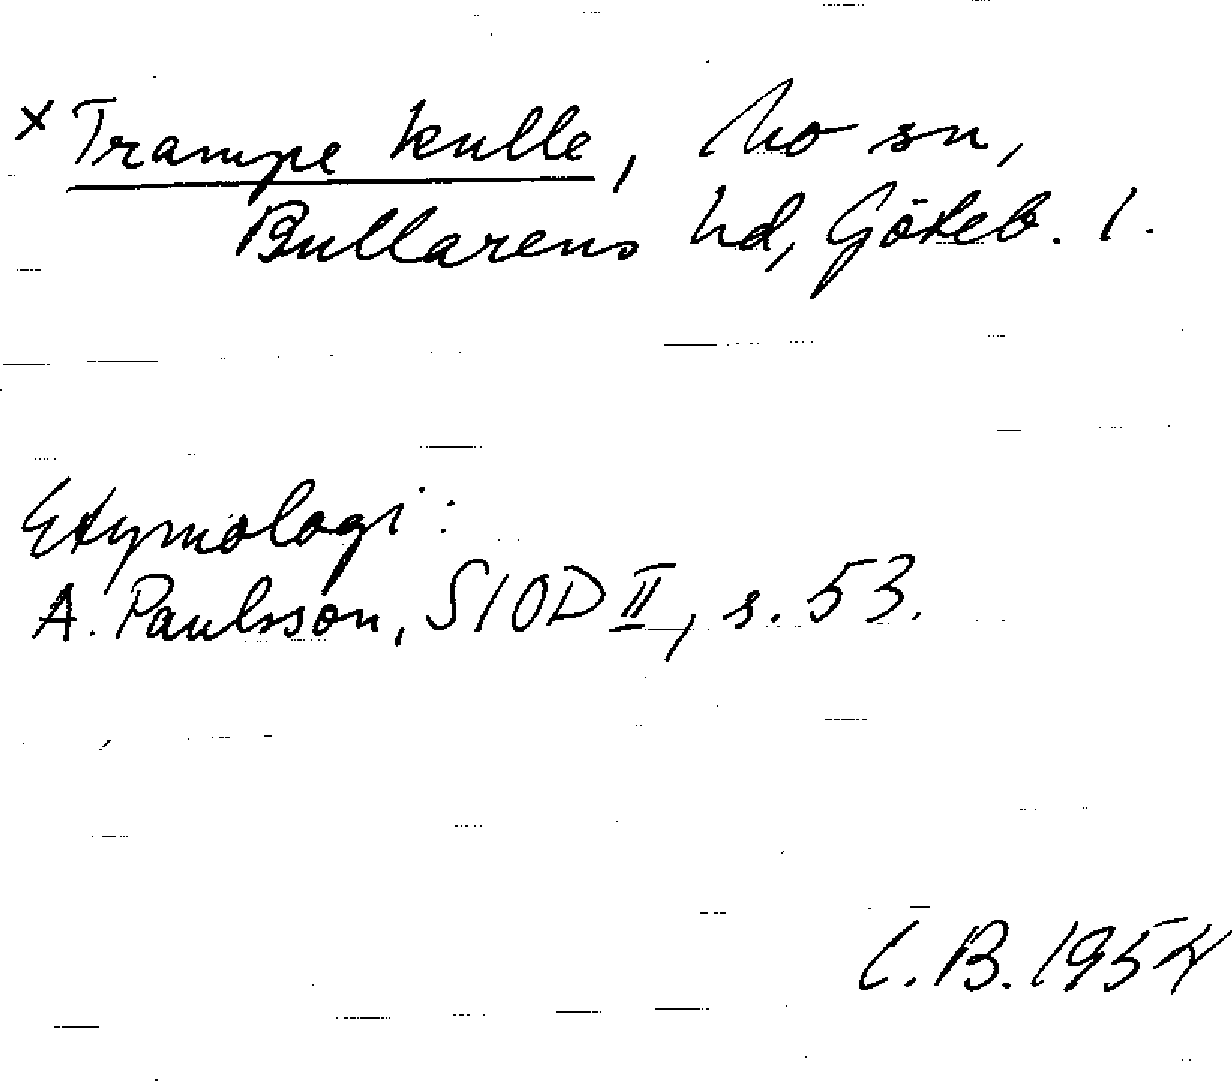 x Trampe kulle, Mo sn,
Bullarens hd, Göteb. l.
Etymologi:
A. Paulsson, SIOD II, s. 53.
C.B. 1954